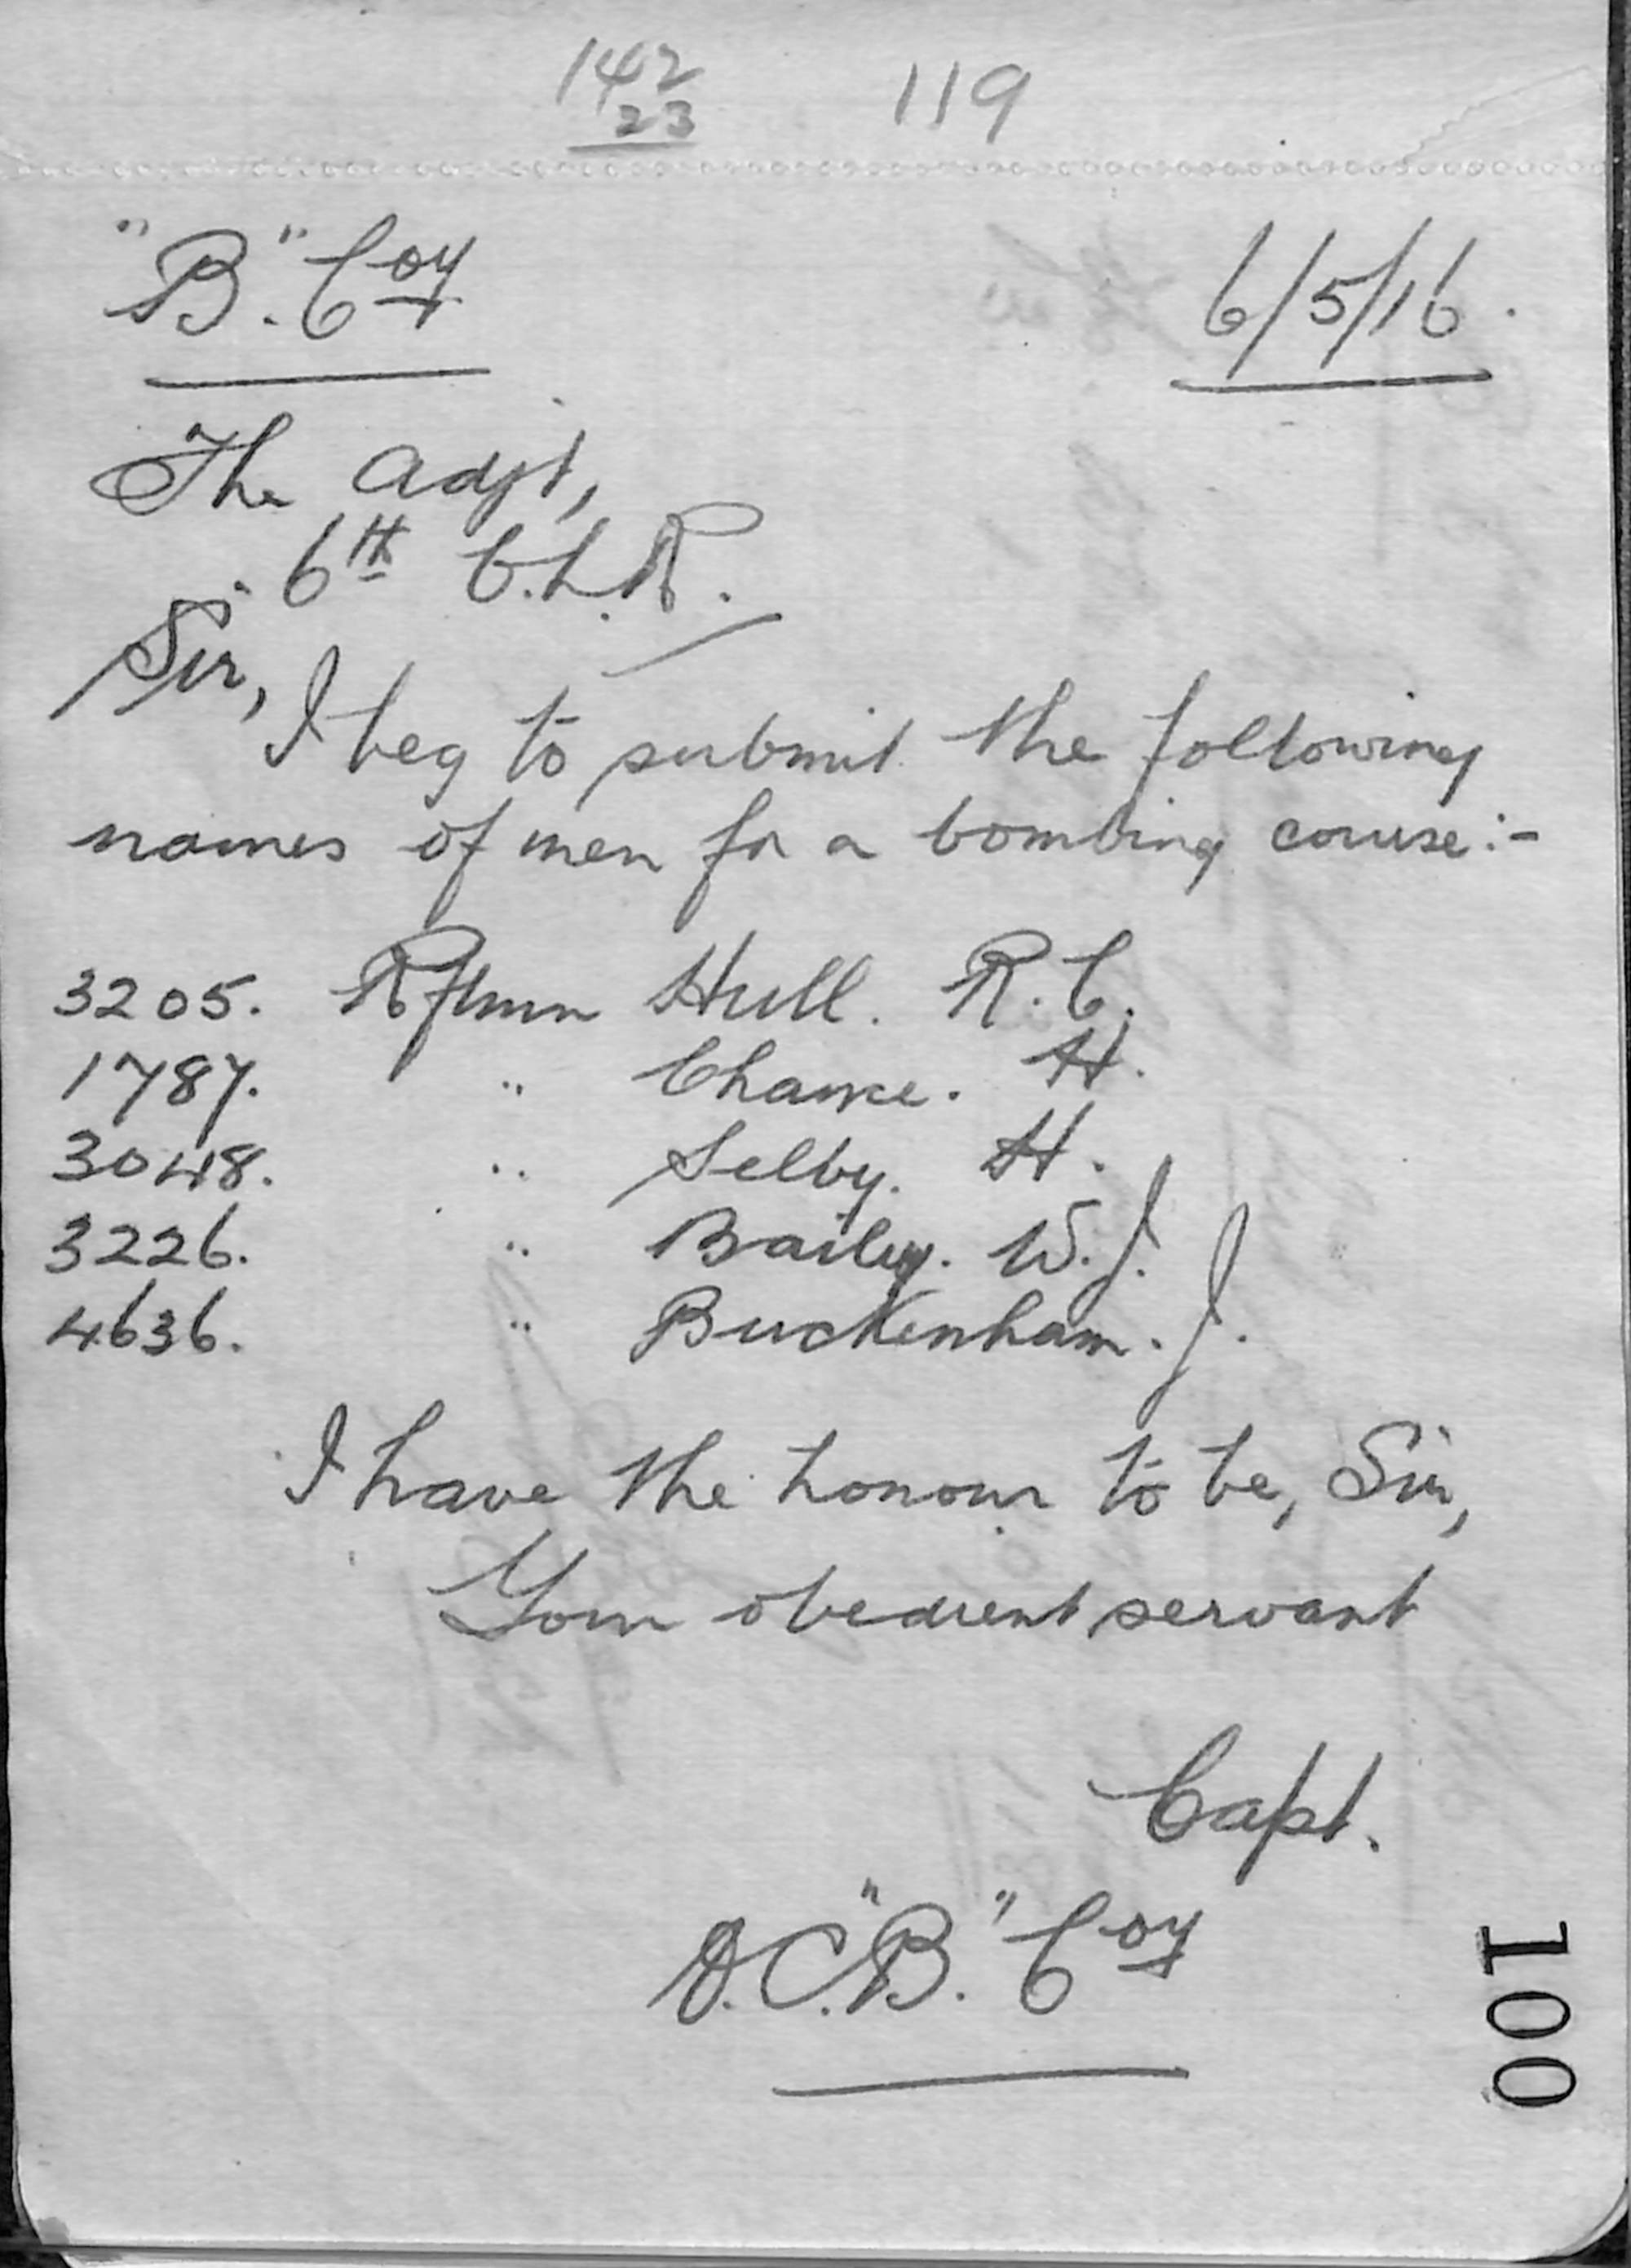 142 119
23
"B". Coy 6/5/16.
The Adjt,
6th C.L.R.
Sir,
I beg to submit the following
names of men for a bombing course:-
3205. Rflmn Hull. R.C.
1787. " Chance. H.
3048. " Selby. H.
3226. " Bailey. W.J.
4636. " Buckenham. J.
I have the honour to be, Sir,
Your obedient servant
Capt.
O.C. "B". Coy
100